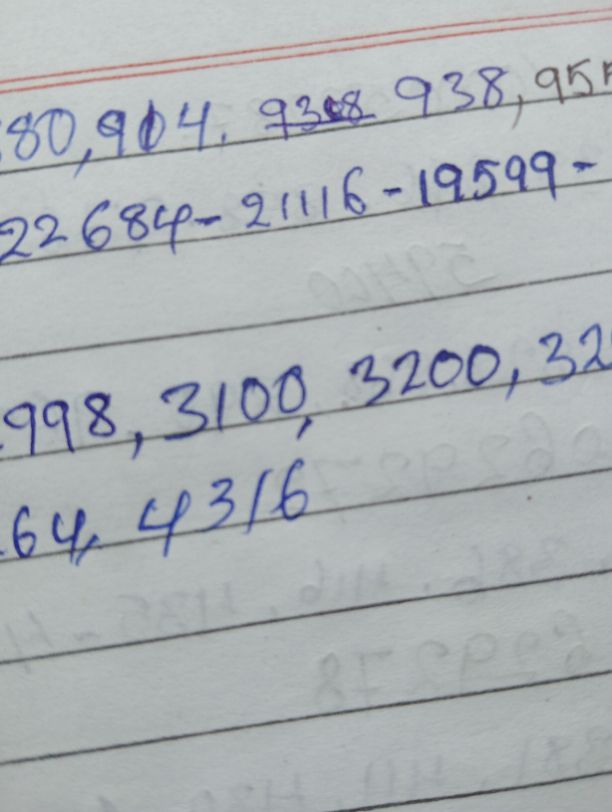 80,904, 938 938, 95
22684-21116-19599-
998, 3100, 3200, 32
64, 4316